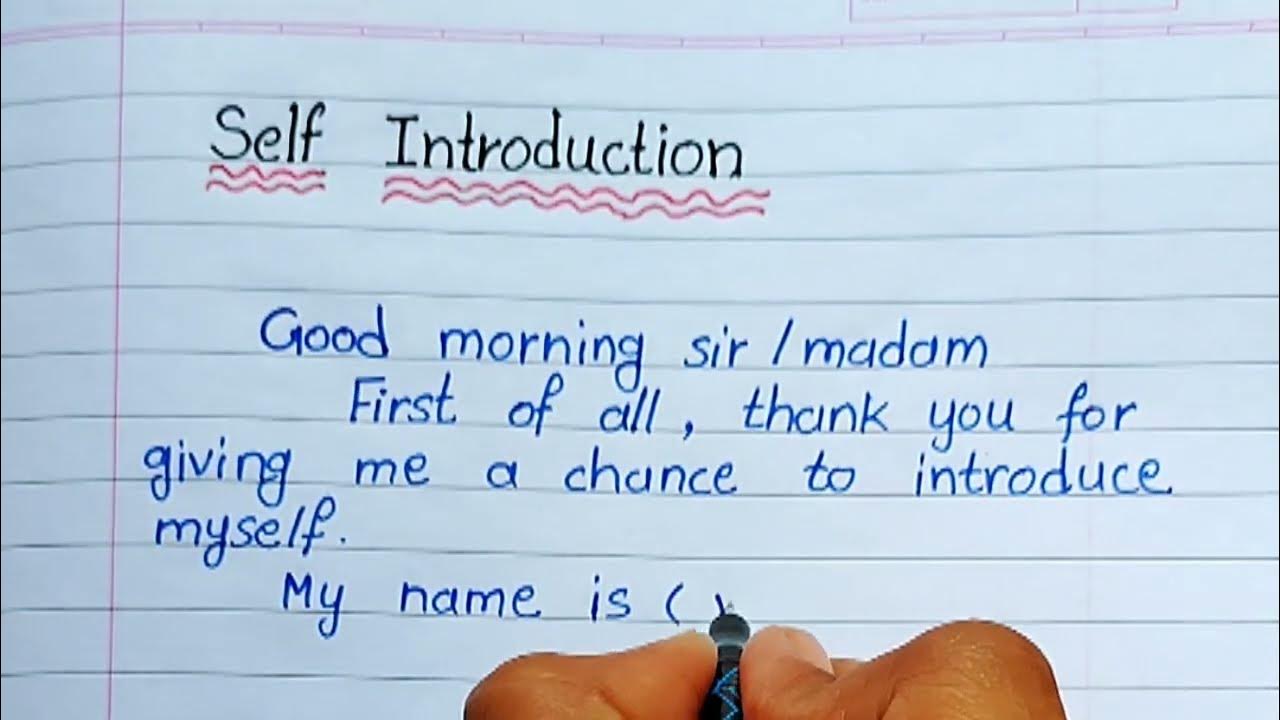 Self Introduction
Good morning sir/madam
First of all, thank you for
giving me a chance to introduce
myself.
My name is (